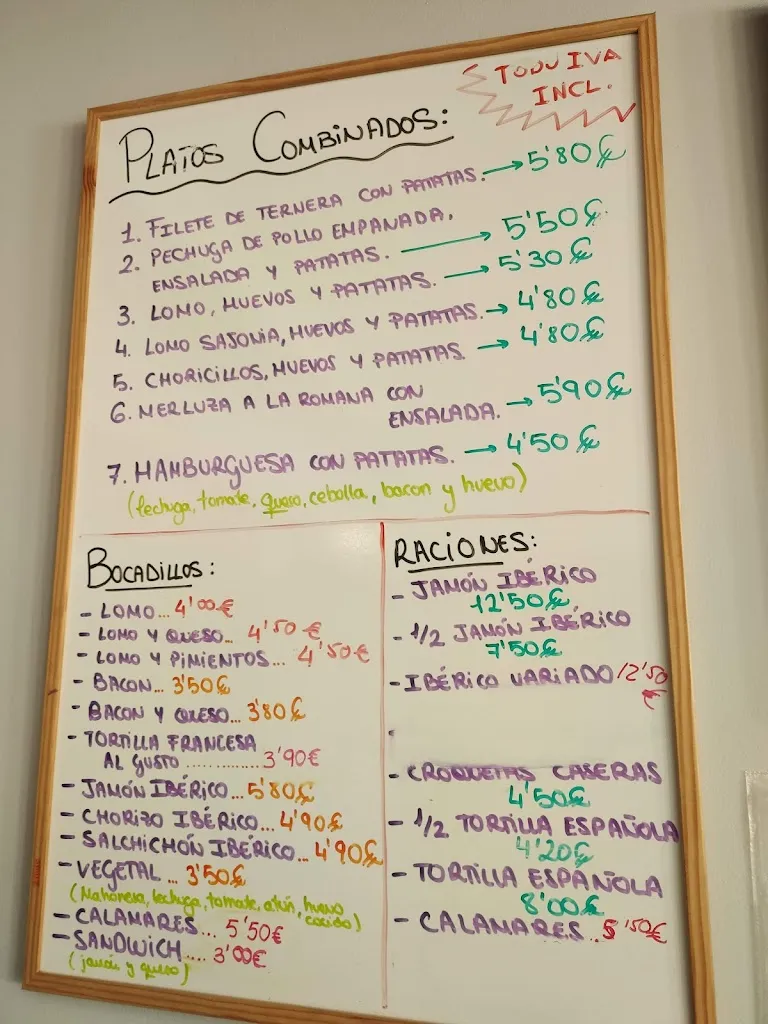 TODO IVA
INCL.
PLATOS COMBINADOS:
1. FILETE DE TERNERA CON PATATAS. → 5'80€
2. PECHUGA DE POLLO EMPANADA,
ENSALADA Y PATATAS. → 5'50€
3. LOMO, HUEVOS Y PATATAS. → 5'30€
4. LOMO SAJONIA, HUEVOS Y PATATAS. → 4'80€
5. CHORICILLOS, HUEVOS Y PATATAS → 4'80€
6. MERLUZA A LA ROMANA CON
ENSALADA. → 5'90€
7. HAMBURGUESA CON PATATAS. → 4'50€
(lechuga, tomate, queso, cebolla, bacon y huevo)
BOCADILLOS:
- LOMO... 4'00€
- LOMO Y QUESO... 4'50€
- LOMO Y PIMIENTOS... 4'50€
- BACON... 3'50€
- BACON Y QUESO... 3'80€
- TORTILLA FRANCESA
AL GUSTO ............ 3'90€
- JAMÓN IBÉRICO... 5'80€
- CHORIZO IBÉRICO... 4'90€
- SALCHICHÓN IBÉRICO... 4'90€
- VEGETAL... 3'50€
(Mahonesa, lechuga, tomate, atún, huevo
cocido)
- CALAMARES... 5'50€
- SANDWICH.... 3'00€
(jamón y queso)
RACIONES:
- JAMÓN IBÉRICO
12'50€
- 1/2 JAMÓN IBÉRICO
7'50€
- IBÉRICO VARIADO 12'50
€
- CROQUETAS CASERAS
4'50€
- 1/2 TORTILLA ESPAÑOLA
4'20€
- TORTILLA ESPAÑOLA
8'00€
- CALAMARES.. 5'50€